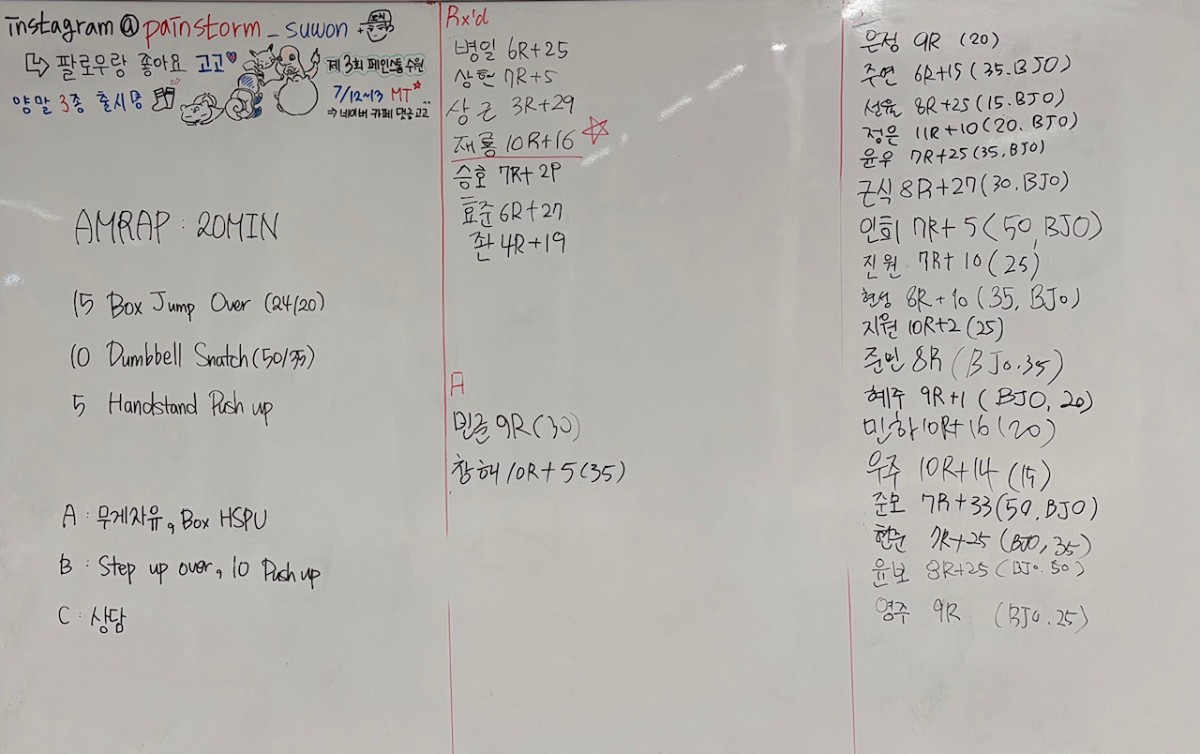 instagram @ painstorm _ suwon +
팔로우랑 좋아요 고고
양말 3종 출시
제3회 페인스톰 수원
7/12~13 MT
⇒ 네이버 카페 댓글고고
AMRAP : 20MIN
15 Box Jump Over (24/20)
10 Dumbbell Snatch (50/35)
5 Handstand Push up
A : 무게자유, Box HSPU
B : Step up over, 10 Push up
C : 상담
Rx'd
병일 6R+25
상헌 7R+5
상근 3R+29
재룡 10R+16
승호 7R+29
효준 6R+27
존 4R+19
A
민준 9R(30)
창해 10R+5(35)
은정 9R (20)
주연 6R+15(35.BJO)
선율 8R+25(15.BJO)
정은 11R+10(20.BJO)
윤우 7R+25(35,BJO)
근식 8R+27(30.BJO)
인회 7R+5(50,BJO)
진원 7R+10(25)
현성 8R+10(35,BJO)
지원 10R+2(25)
준민 8R(BJO.35)
혜주 9R+1(BJO,20)
민하 10R+16(20)
우주 10R+14(15)
준모 7R+33(50,BJO)
현준 7R+25(BJO,35)
윤보 8R+25(BJO.50)
영주 9R (BJO.25)